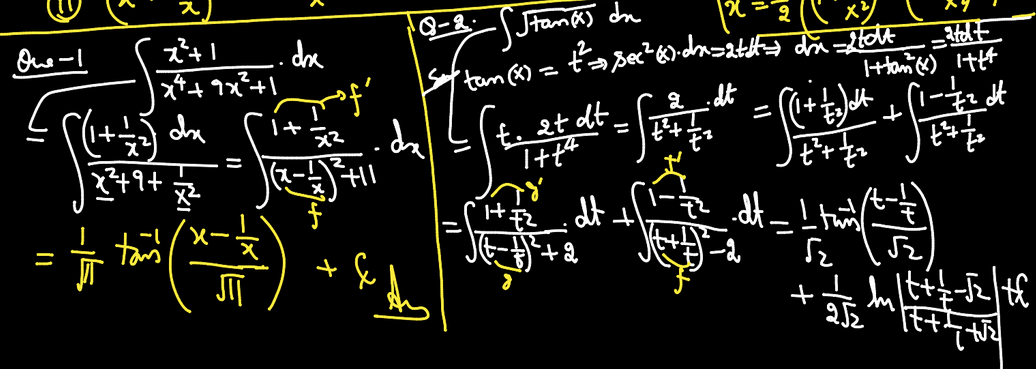 Que-1 ∫ (x²+1)/(x⁴+9x²+1) . dx
= ∫ (1+1/x²) dx/(x²+9+1/x²) = ∫ (1+1/x²)/((x-1/x)²+11) . dx
f'
f
= 1/√11 tan⁻¹((x-1/x)/√11) + c Ans
Q-2. ∫ √tan(x) dx
tan(x) = t² ⇒ sec²(x).dx=2tdt ⇒ dx = 2tdt/(1+tan²(x)) = 2tdt/(1+t⁴)
= ∫ t. 2t dt/(1+t⁴) = ∫ 2/(t²+1/t²) .dt = ∫ (1+1/t²)dt/(t²+1/t²) + ∫ (1-1/t²)dt/(t²+1/t²)
g' f'
= ∫ (1+1/t²)/((t-1/t)²+2) .dt + ∫ (1-1/t²)/((t+1/t)²-2) .dt = 1/√2 tan⁻¹((t-1/t)/√2)
g f
+ 1/2√2 ln |(t+1/t-√2)/(t+1/t+√2)| + c